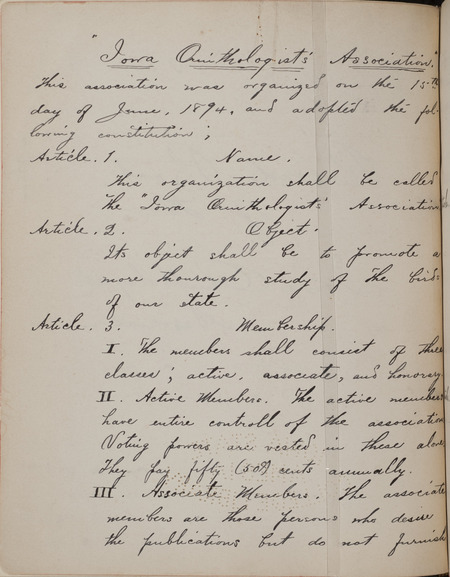 "Iowa Ornithologist's Association".
This association was organized on the 15th
day of June, 1894, and adopted the fol-
lowing constitution;
Article. 1. Name.
This organization shall be called
The "Iowa Ornithologist's Association
Article. 2. Object.
Its object shall be to promote a
more thourough study of the birds
of our state.
Article. 3. Membership.
I. The members shall consist of three
classes; active, associate, and honorary
II. Active Members. The active members
have entire controll of the association
Voting powers are vested in these alone
They pay fifty (50¢) cents annually.
III. Associate Members. The associate
members are those persons who desire
the publications but do not furnish